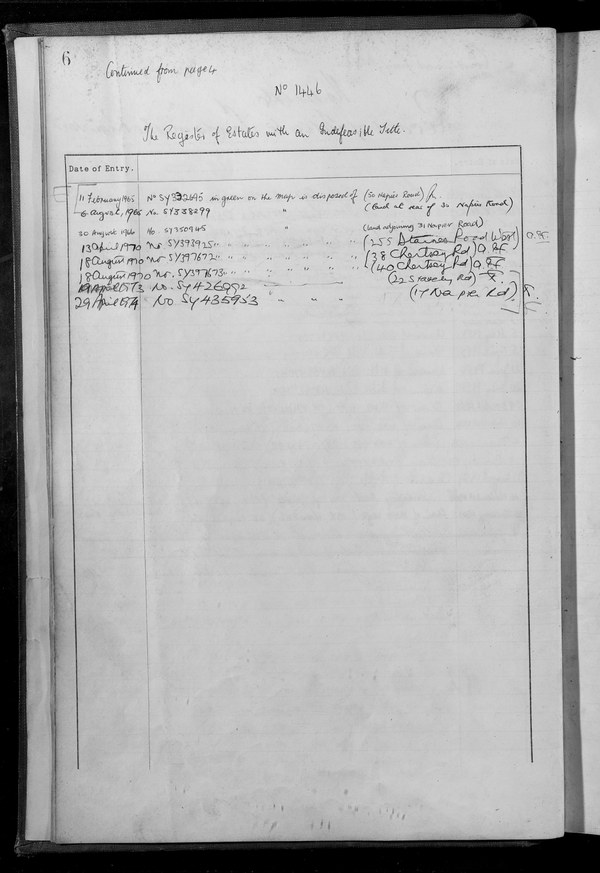 6
Continued from page 4
No 1446
The Register of Estates with an Indefeasible Title.
Date of Entry.
11 February 1965 No SY332695 in green on the map is disposed of (30 Napier Road)
6 August, 1965 No. SY338299 " (land at rear of 30 Napier Road)
30 August 1966 No. SY350945 " (land adjoining 31 Napier Road)
13 April 1970 No. SY393925 " " " " " " " (255 Staines Road West)
18 August 1970 No SY397672 " " " " " " " (38 Chertsey Rd)
18 August 1970 No. SY397673 " " " " " " " (40 Chertsey Rd)
19 April 1973 No. SY426992 (22 Staveley Rd)
29 April 1974 No SY435953 " " " (17 Napier Rd)